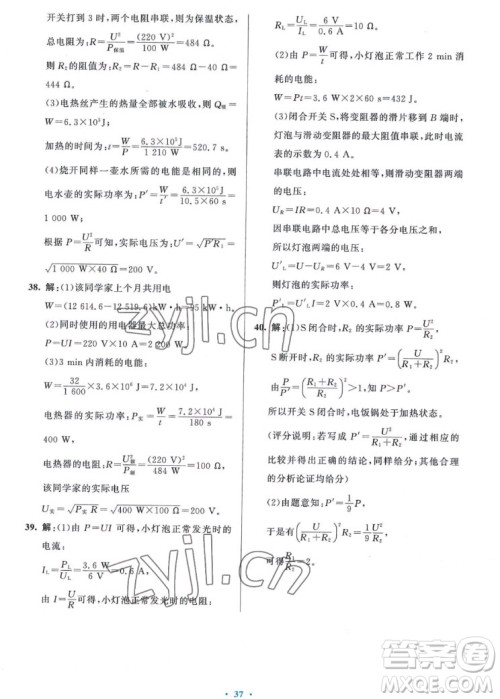 开关打到 3 时,两个电阻串联,为保温状态,
总电阻为:R=U²/P保温=(220 V)²/100 W=484 Ω,
则 R₂ 的阻值为:R₂=R-R₁=484 Ω-40 Ω=
444 Ω。
(3)电热丝产生的热量全部被水吸收,Q吸=
W=6.3×10⁵ J
加热的时间为:t=W/P=6.3×10⁵J/1 210 W=520.7 s。
(4)烧开同样一壶水所需的电能是相同的,
电水壶的实际功率:P′=W/t′=6.3×10⁵J/10.5×60 s=
1 000 W,
根据 P=U²/R可得,实际电压为:U′=√P′R₁=
√1 000 W×40 Ω=200 V。
38. 解:(1)该同学家上个月共用电
W=(12 614.6-12 519.6)kW·h=95 kW·h。
(2)同时使用的用电器最大总功率:
P=UI=220 V×10 A=2 200 W。
(3)3 min内消耗的电能:
W=32/1 600×3.6×10⁶ J=7.2×10⁴ J,
电热器的实际功率:P实=W/t=7.2×10⁴ J/180 s=
400 W,
电热器的电阻:R=U²/P=(220 V)²/484 W=100 Ω,
该同学家的实际电压
U实=√P实R=√400 W×100 Ω=200 V。
39. 解:(1)由 P=UI 可得,小灯泡正常发光时的
电流:
I_L=P_L/U_L=3.6 W/6 V=0.6 A,
由 I=U/R可得,小灯泡正常发光时的电阻:
R_L=U_L/I_L=6 V/0.6 A=10 Ω。
(2)由 P=W/t可得,小灯泡正常工作 2 min 消
耗的电能:
W=Pt=3.6 W×2×60 s=432 J。
(3)闭合开关 S,将变阻器的滑片移到 B 端时,
灯泡与滑动变阻器的最大阻值串联,此时电流
表的示数为 0.4 A。
串联电路中电流处处相等,则滑动变阻器两端
的电压:
U_R=IR=0.4 A×10 Ω=4 V,
因串联电路中总电压等于各分电压之和,
所以灯泡两端的电压:
U′_L=U-U_R=6 V-4 V=2 V,
灯泡的实际功率:
P′_L=U′_LI=2 V×0.4 A=0.8 W。
40. 解:(1)S 闭合时,R₂ 的实际功率 P=U²/R₂
S 断开时,R₂ 的实际功率 P′=(U/R₁+R₂)²R₂
由 P/P′=(R₁+R₂/R₂)²可知,P>P′
所以开关 S 闭合时,电饭锅处于加热状态。
(评分说明:若学生写明 P′=U²/R₁+R₂,并通过
比较并得出正确的结论,同样给分;其他合理
的分析论证均给分)
(2)由题意知:P′=1/9 P,
于是有(U/R₁+R₂)²R₂=1/9 U²/R₂
可得R₁/R₂=2。
37
zyjl.cn
zyjl.cn
答案圈
MXQE.COM